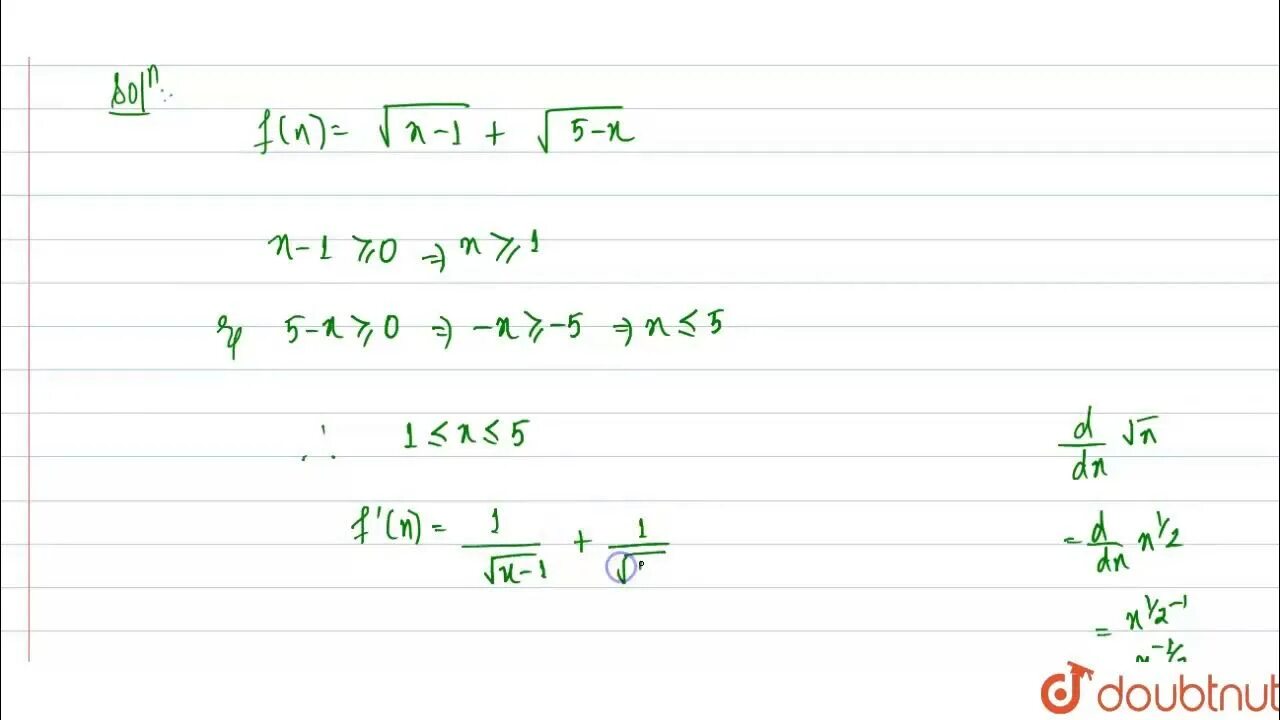 Solⁿ:
f(x) = √(x-1) + √(5-x)
x-1 ≥ 0 ⇒ x ≥ 1
& 5-x ≥ 0 ⇒ -x ≥ -5 ⇒ x ≤ 5
∴ 1 ≤ x ≤ 5
f'(x) = 1/√(x-1) + 1/√
d/dx √x
= d/dx x^1/2
= x^1/2-1
x^-1/2
doubtnut